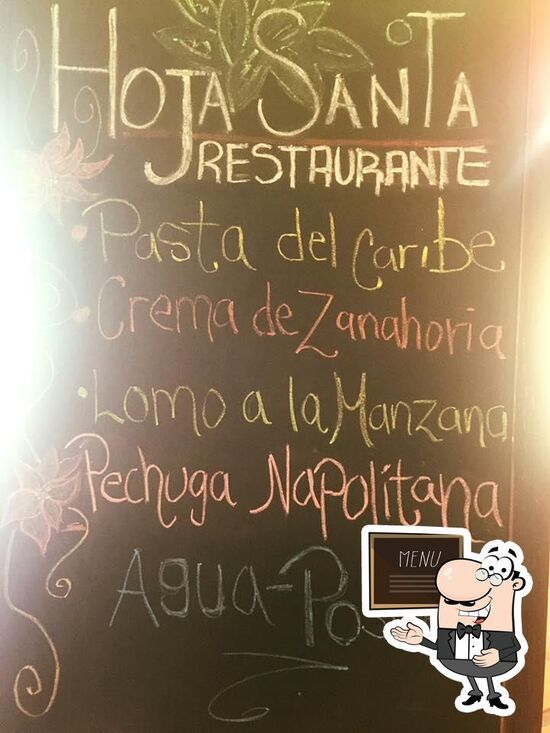 HOJA SANTA
RESTAURANTE
• Pasta del caribe
• Crema de Zanahoria
• Lomo a la Manzana
Pechuga NAPOlitana
AGUA-
MENU